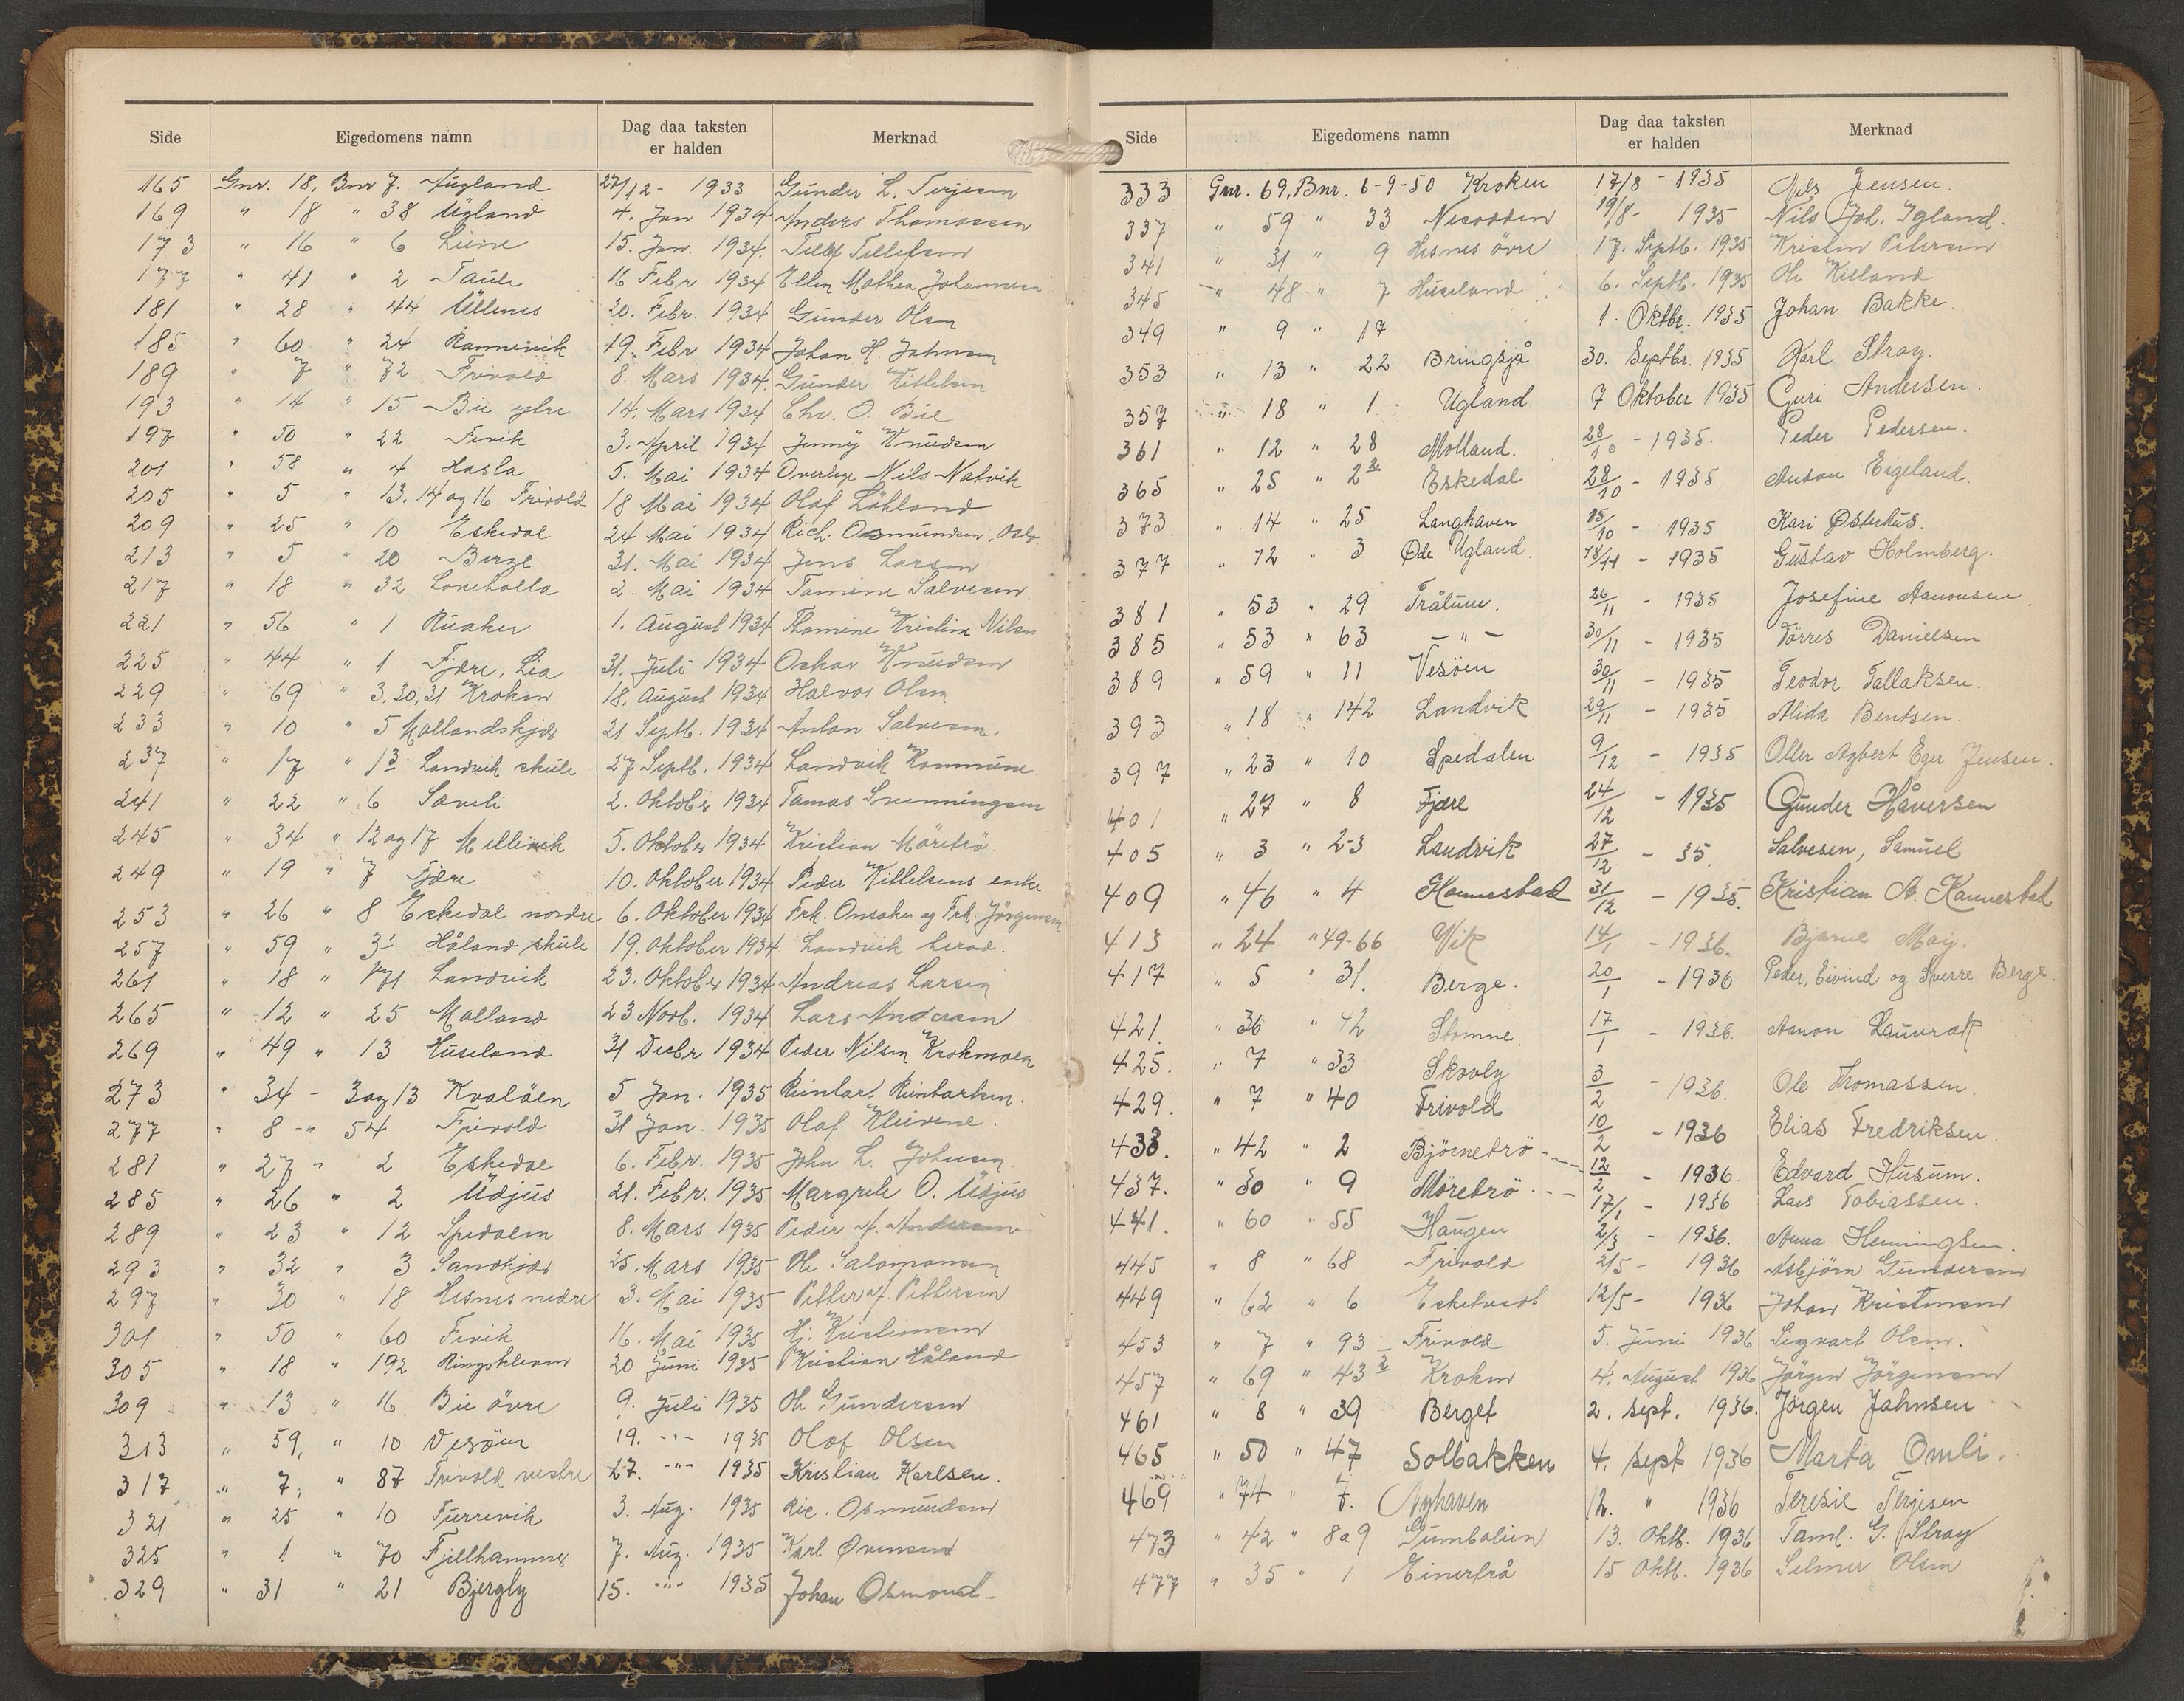 Side Eigedomens namn Dag daa taksten er halden Merknad
165 Gnr. 18, Bnr 7. Ugland 27/12 - 1933 Gunder L. Terjesen
169 " 18 " 38 Ugland 4. Jan 1934 Anders Thomassen
173 " 16 " 6 Liene 15. Jan. 1934. Tellef Tellefsen
177 " 41 " 2 Taule 16 Febr 1934 Ellen Mathea Johannesen
181 " 28 " 44 Ullenes 20. Febr. 1934 Gunder Olsen
185 " 60 " 24 Rannevik 19. Febr 1934 Johan H. Johnsen
189 " 7 " 72 Frivold 8. Mars 1934. Gunder Kittelsen
193 " 14 " 15 Bie ytre 14. Mars 1934 Chr. O. Bie
197 " 50 " 22 Fevik 3. April 1934 Jenny Knudsen
201 " 58 " 4 Hasla 5. Mai 1934 Overlege Nils Natvik
205 " 5 " 13. 14 og 16 Frivold 18 Mai 1934 Olaf Löhland
209 " 25 " 10 Eskedal 24 Mai 1934 Rich. Osmundsen, Oslo.
213 " 5 " 20 Berge 31. Mai 1934 Jens Larsen
217 " 18 " 32 Loneholla 2. Mai 1934 Tamine Salvesen.
221 " 56 " 1 Ruaker 1. August 1934 Thomine Kristine Nilsen
225 " 44 " 1 Fjære, Lia 31. Juli 1934 Oskar Knudsen
229 " 69 " 3, 30, 31 Kroken 18. August 1934 Halvor Olsen
233 " 10 " 5 Mollandskjær 21 Septb. 1934 Anton Salvesen.
237 " 17 " 13 Landvik skule 27 Septb. 1934 Landvik Kommune
241 " 22 " 6 Sæveli 2. Oktober 1934 Tomas Svenningsen
245 " 34 " 12 og 17 Mellevik 5. Oktober 1934 Kristian Mörebrö.
249 " 19 " 7 Fjære 10. Oktober 1934 Peder Kittelsens enke
253 " 26 " 8 Eskedal nordre 6. Oktober 1934 Frk. Onsaker og Frk. Jörgensen
257 " 59 " 3' Håland skule 19. Oktober 1934 Landvik herad.
261 " 18 " 171 Landvik 23. Oktober 1934 Andreas Larsen
265 " 12 " 25 Molland 23 Novb. 1934 Lars Andersen
269 " 49 " 13 Huseland 31 Decbr 1934 Peder Nilsen Krokmoen
273 " 34 - 3 og 13 Kvalöen 5 Jan. 1935 Reinhart Reinhartsen.
277 " 8 - " 54 Frivold 31 Jan. 1935 Olaf Kleivene.
281 " 27 " 2 Eskedal 6. Febr. 1935 John L. Johnsen.
285 " 26 " 2 Udjus 21. Febr. 1935 Margrete O. Udjus
289 " 23 " 12 Spedalen 8. Mars 1935 Peder A. Andersen
293 " 32 " 3 Sandkjær 25. Mars 1935 Ole Salomonsen
297 " 30 " 18 Hesnes nedre 3. Mai 1935 Petter Pettersen
301 " 50 " 60 Fevik 16. Mai 1935 Hj. Kristiansen
305 " 18 " 192 Ringskleven 20 Juni 1935 Kristian Håland
309 " 13 " 16 Bie övre 9. Juli 1935 Ole Gundersen
313 " 59, " 10 Vesöen 19. -"- 1935 Olaf Olsen
317 " 7, " 87 Frivold vestre 27. -"- 1935 Kristian Karlsen.
321 " 25 " 10 Furrevik 3. Aug. 1935 Ric. Osmundsen
325 " 1 " 70 Fjellhammer 7. Aug. 1935 Karl Ovensen
329 " 31 " 21 Bjergly 15. -"- 1935 Johan Osmond-
Side Eigedomens namn Dag daa taksten er halden Merknad
333 Gnr. 69, Bnr. 6-9-50 Kroken 17/8 - 1935 Nils Jensen.
337 " 59 " 33 Nesodden 19/8 - 1935 Nils Joh. Igland.
341 " 31 " 9 Hesnes övre 17. Septb. 1935 Kristen Petersen
345 " 48 " 7 Huseland 6. Septb. 1935 Ole Killand
349 " 9 " 17 1. Oktbr. 1935 Johan Bakke.
353 " 13 " 22 Bringsjå 30. Septbr. 1935 Karl Stray.
357 " 18 " 1 Ugland 7 Oktober 1935 Guri Andersen.
361 " 12 " 28 Molland. 28/10 - 1935. Peder Pedersen.
365 " 25 " 2 Eskedal 28/10 - 1935 Anton Eigeland.
373 " 14 " 25 Langhaven 15/10 - 1935 Kari Østerhus.
377 " 12 " 3 Øde Ugland. 18/11 - 1935 Gustav Holmberg.
381 " 53 " 29 Trålum. 26/11 - 1935 Josefine Aanonsen
385 " 53 " 63 - " - 30/11 - 1935 Törres Danielsen
389 " 59 " 11 Vesöen 30/11 - 1935 Teodor Tallaksen.
393 " 18 " 142 Landvik 29/11 - 1935 Alida Bentsen.
397 " 23 " 10 Spedalen 9/12 - 1935 Oller Agbert Eger Jensen.
401 " 27 " 8 Fjære 24/12 - 1935 Gunder Håversen
405 " 3 " 2-3 Landvik 27/12 - 35. Salvesen, Samuel
409 " 46 " 4 Kannestad 31/12 - 1935. Kristian A. Kannestad
413 " 24 " 49-66 Vik 14/1 - 1936. Bjarne Moij.
417 " 5 " 31. Berge. 20/1 - 1936 Peder, Eivind og Sverre Berge.
421. " 36 " 42 Stomne. 17/1 - 1936. Aanon Lauvrak
425. " 7 " 33 Skovly 3/2 - 1936. Ole Thomassen.
429. " 7 " 40 Frivold 10/2 - 1936 Elias Fredriksen.
433. " 42 " 2 Bjørnebrö 12/2 - 1936. Edvard Husum.
437. " 30 " 9 Mörebrö 17/1 - 1936 Lars Tobiassen.
441. " 60 " 55 Haugen 2/3 - 1936. Anna Henningsen.
445 " 8 " 68 Frivold 2/5 - 1936 Asbjörn Gundersen
449 " 62 " 6 Esketveit 12/5 - 1936 Johan Kristensen
453 " 7 " 93 Frivold 5. Juni 1936 Sigvart Olsen.
457 " 69 " 43 Kroken 4. August 1936 Jörgen Jörgensen
461 " 8 " 39 Berget 2. sept. 1936. Jörgen Jahnsen
465 " 50 " 47 Solbakken 4. sept 1936 Marta Omli.
469 " 74 " 7. Nyhaven 12. " 1936 Teresie Terjesen
473 " 42 " 8 a 9 Gumbolien 13. Oktb. 1936 Taml. G. Stray
477 " 35 " 1 Einertrå 15 Oktb. 1936 Selmer Olsen